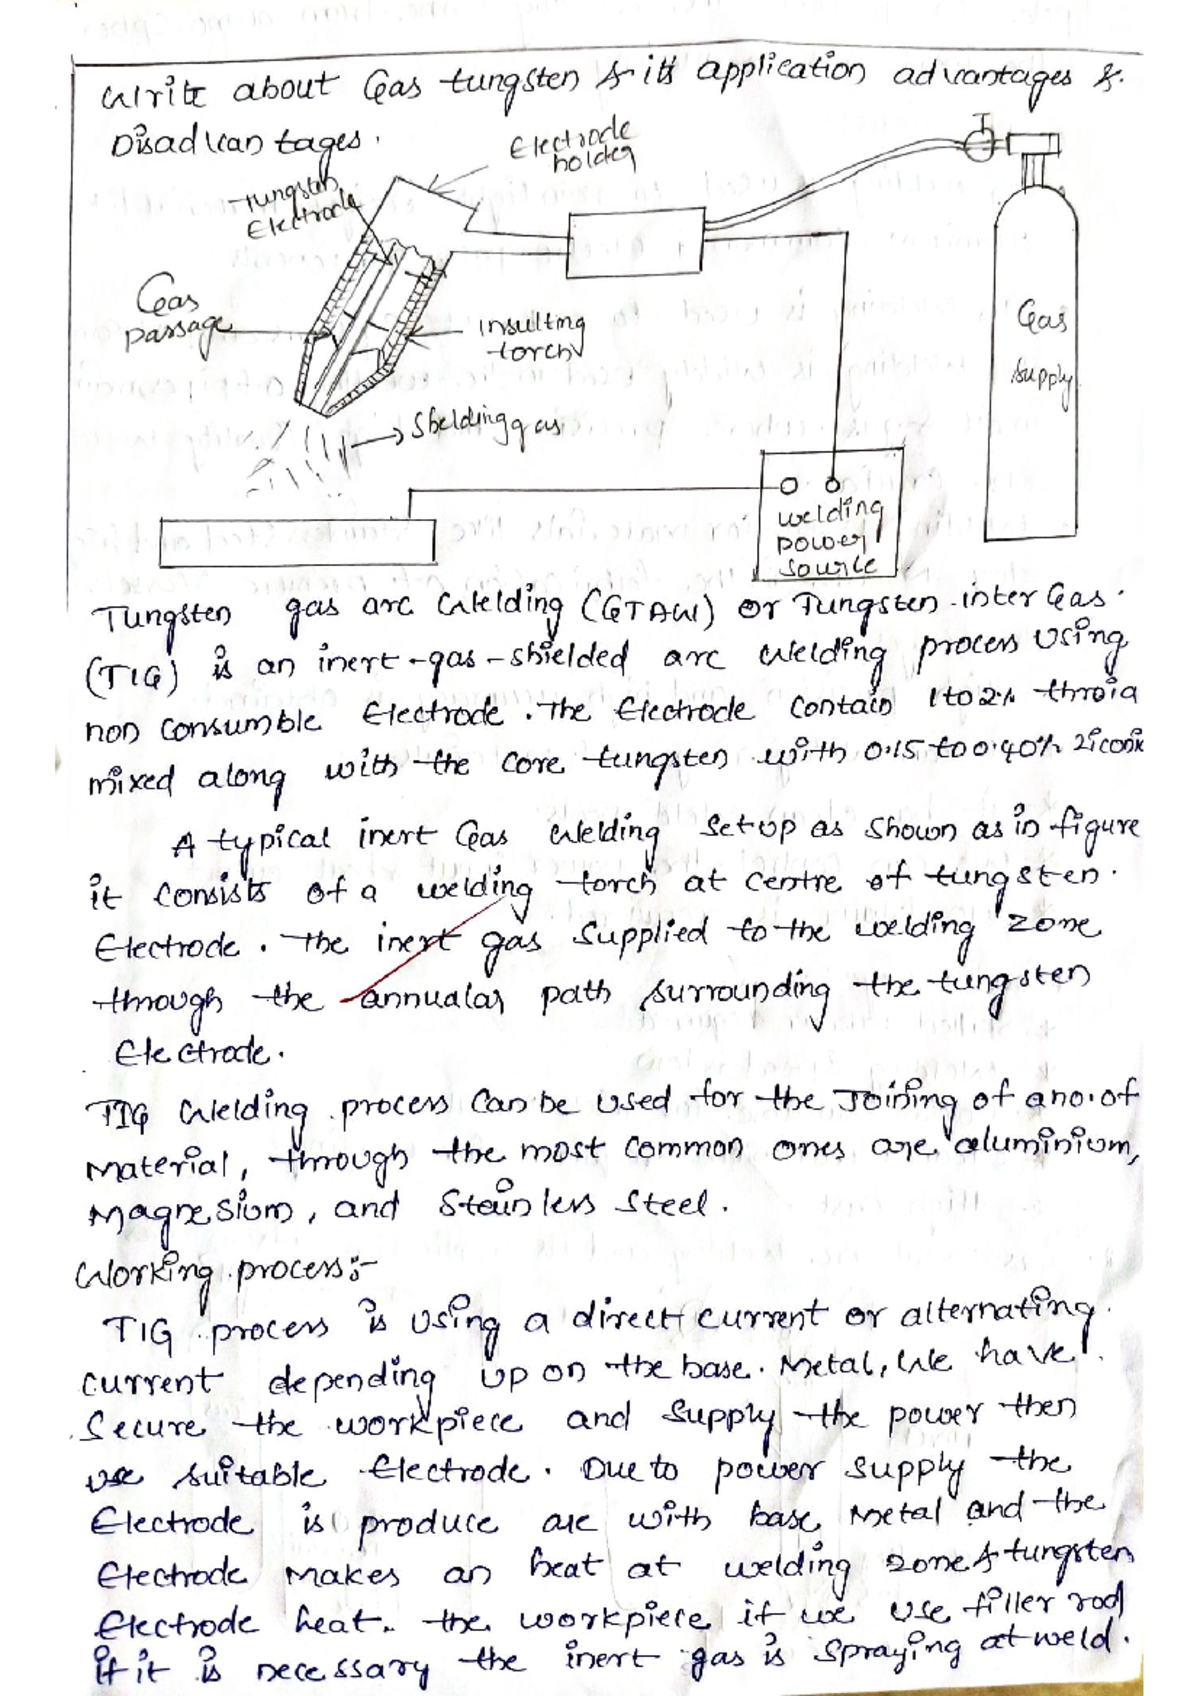 Write about Gas tungsten & its application advantages &
Disadvantages.
Electrode
holder
Tungsten
Electrode
Gas
passage
insulting
torch
Shelding gas
Gas
supply
welding
power
source
Tungsten gas arc welding (GTAW) or Tungsten inter Gas.
(TIG) is an inert-gas-shielded arc welding process using
non consumble Electrode. The Electrode contain 1 to 2% throia
mixed along with the core tungsten with 0.15 to 0.40%
A typical inert Gas welding setup as shown as in figure
it consists of a welding torch at centre of tungsten.
Electrode. The inert gas supplied to the welding zone
through the annualar path surrounding the tungsten
Electrode.
TIG welding process can be used for the Joining of a no. of
Material, through the most common ones are aluminium,
Magnesium, and stainless steel.
Working process:-
TIG process is using a direct current or alternating
current depending up on the base. Metal, We have
secure the workpiece and supply the power then
use suitable Electrode. Due to power supply the
Electrode is produce arc with base Metal and the
Electrode makes an heat at welding zone & tungsten
Electrode heat. the workpiece if we use filler rod
if it is necessary the inert gas is spraying at weld.